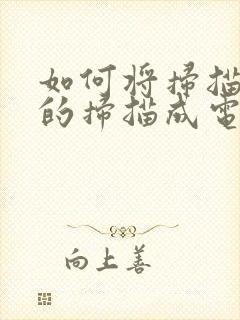 如何将掃描
的掃描成電
向上善